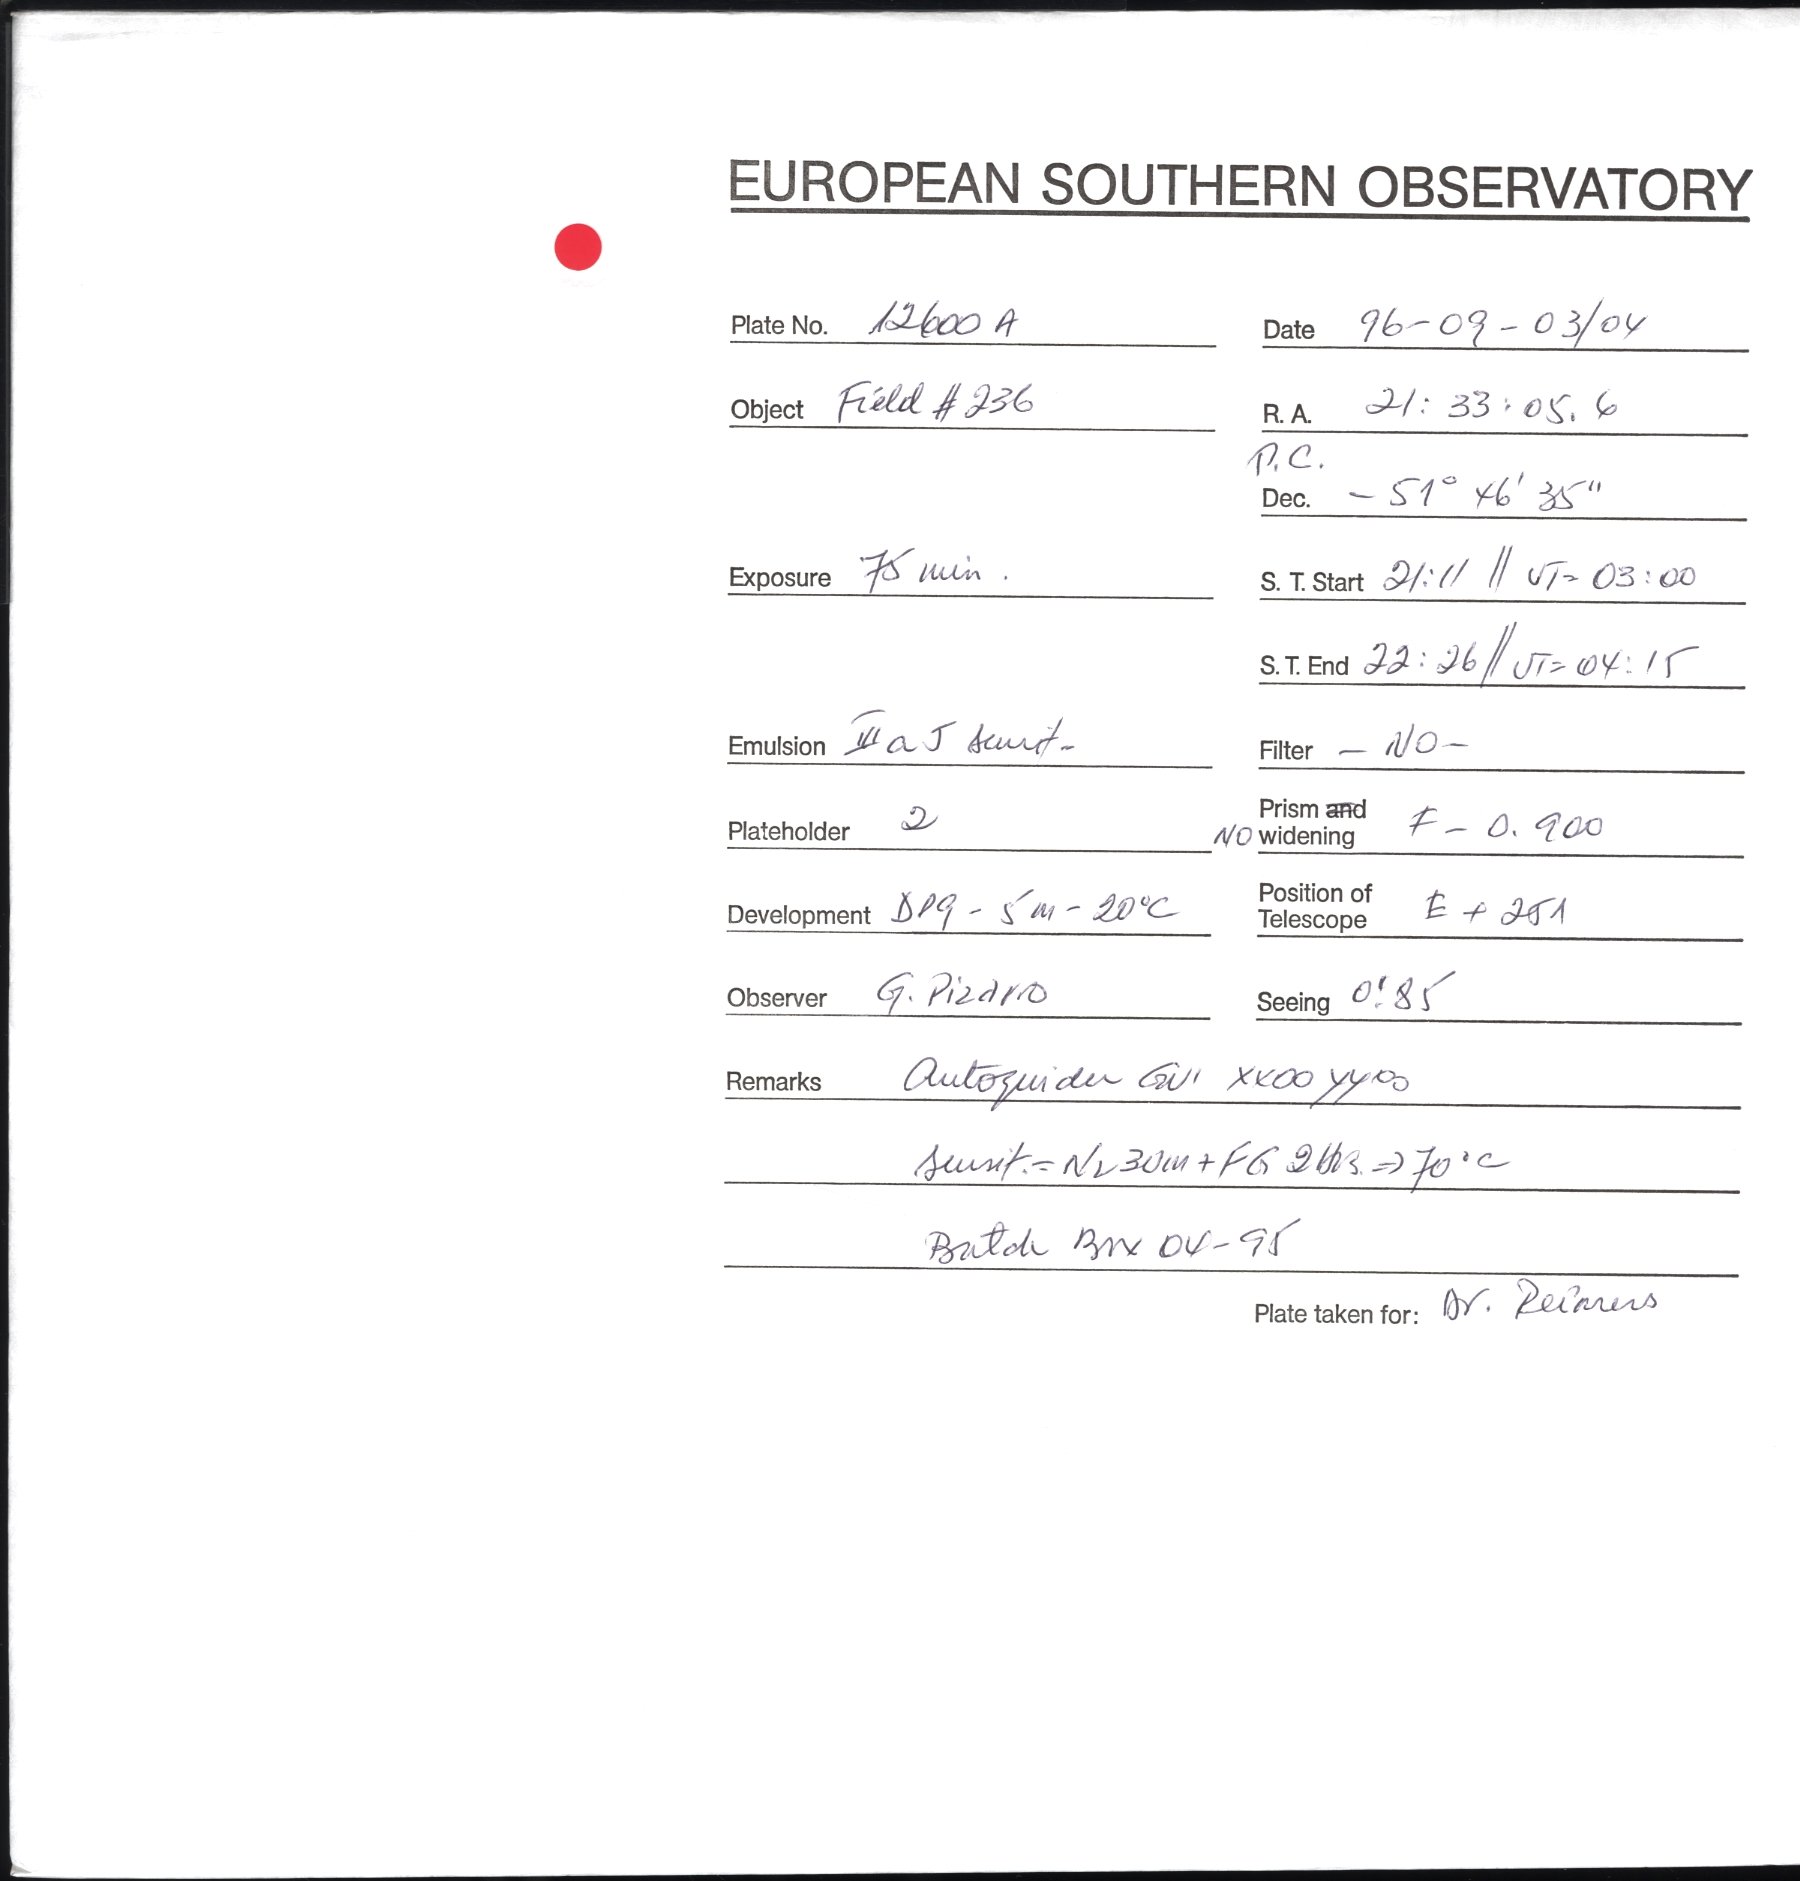 EUROPEAN SOUTHERN OBSERVATORY
Plate No. 12600 A
Date 96-09-03/04
Object Field # 236
R. A. 21: 33: 05. 6
P.C.
Dec. - 51° 46' 35"
Exposure 75 min.
S. T. Start 21:11 // UT= 03:00
S. T. End 22:26 // UT= 04:15
Emulsion III a J sensit-
Filter - NO -
Plateholder 2
Prism and
NO widening F - 0. 900
Development D19 - 5m - 20°C
Position of
Telescope E + 251
Observer G. Pizarro
Seeing 0".85
Remarks Autoguider XX00 YY00
Sensit.= N2 30m + FG 2 Hrs. => 70°C
Batch Box 04-95
Plate taken for: Dr. Reimers